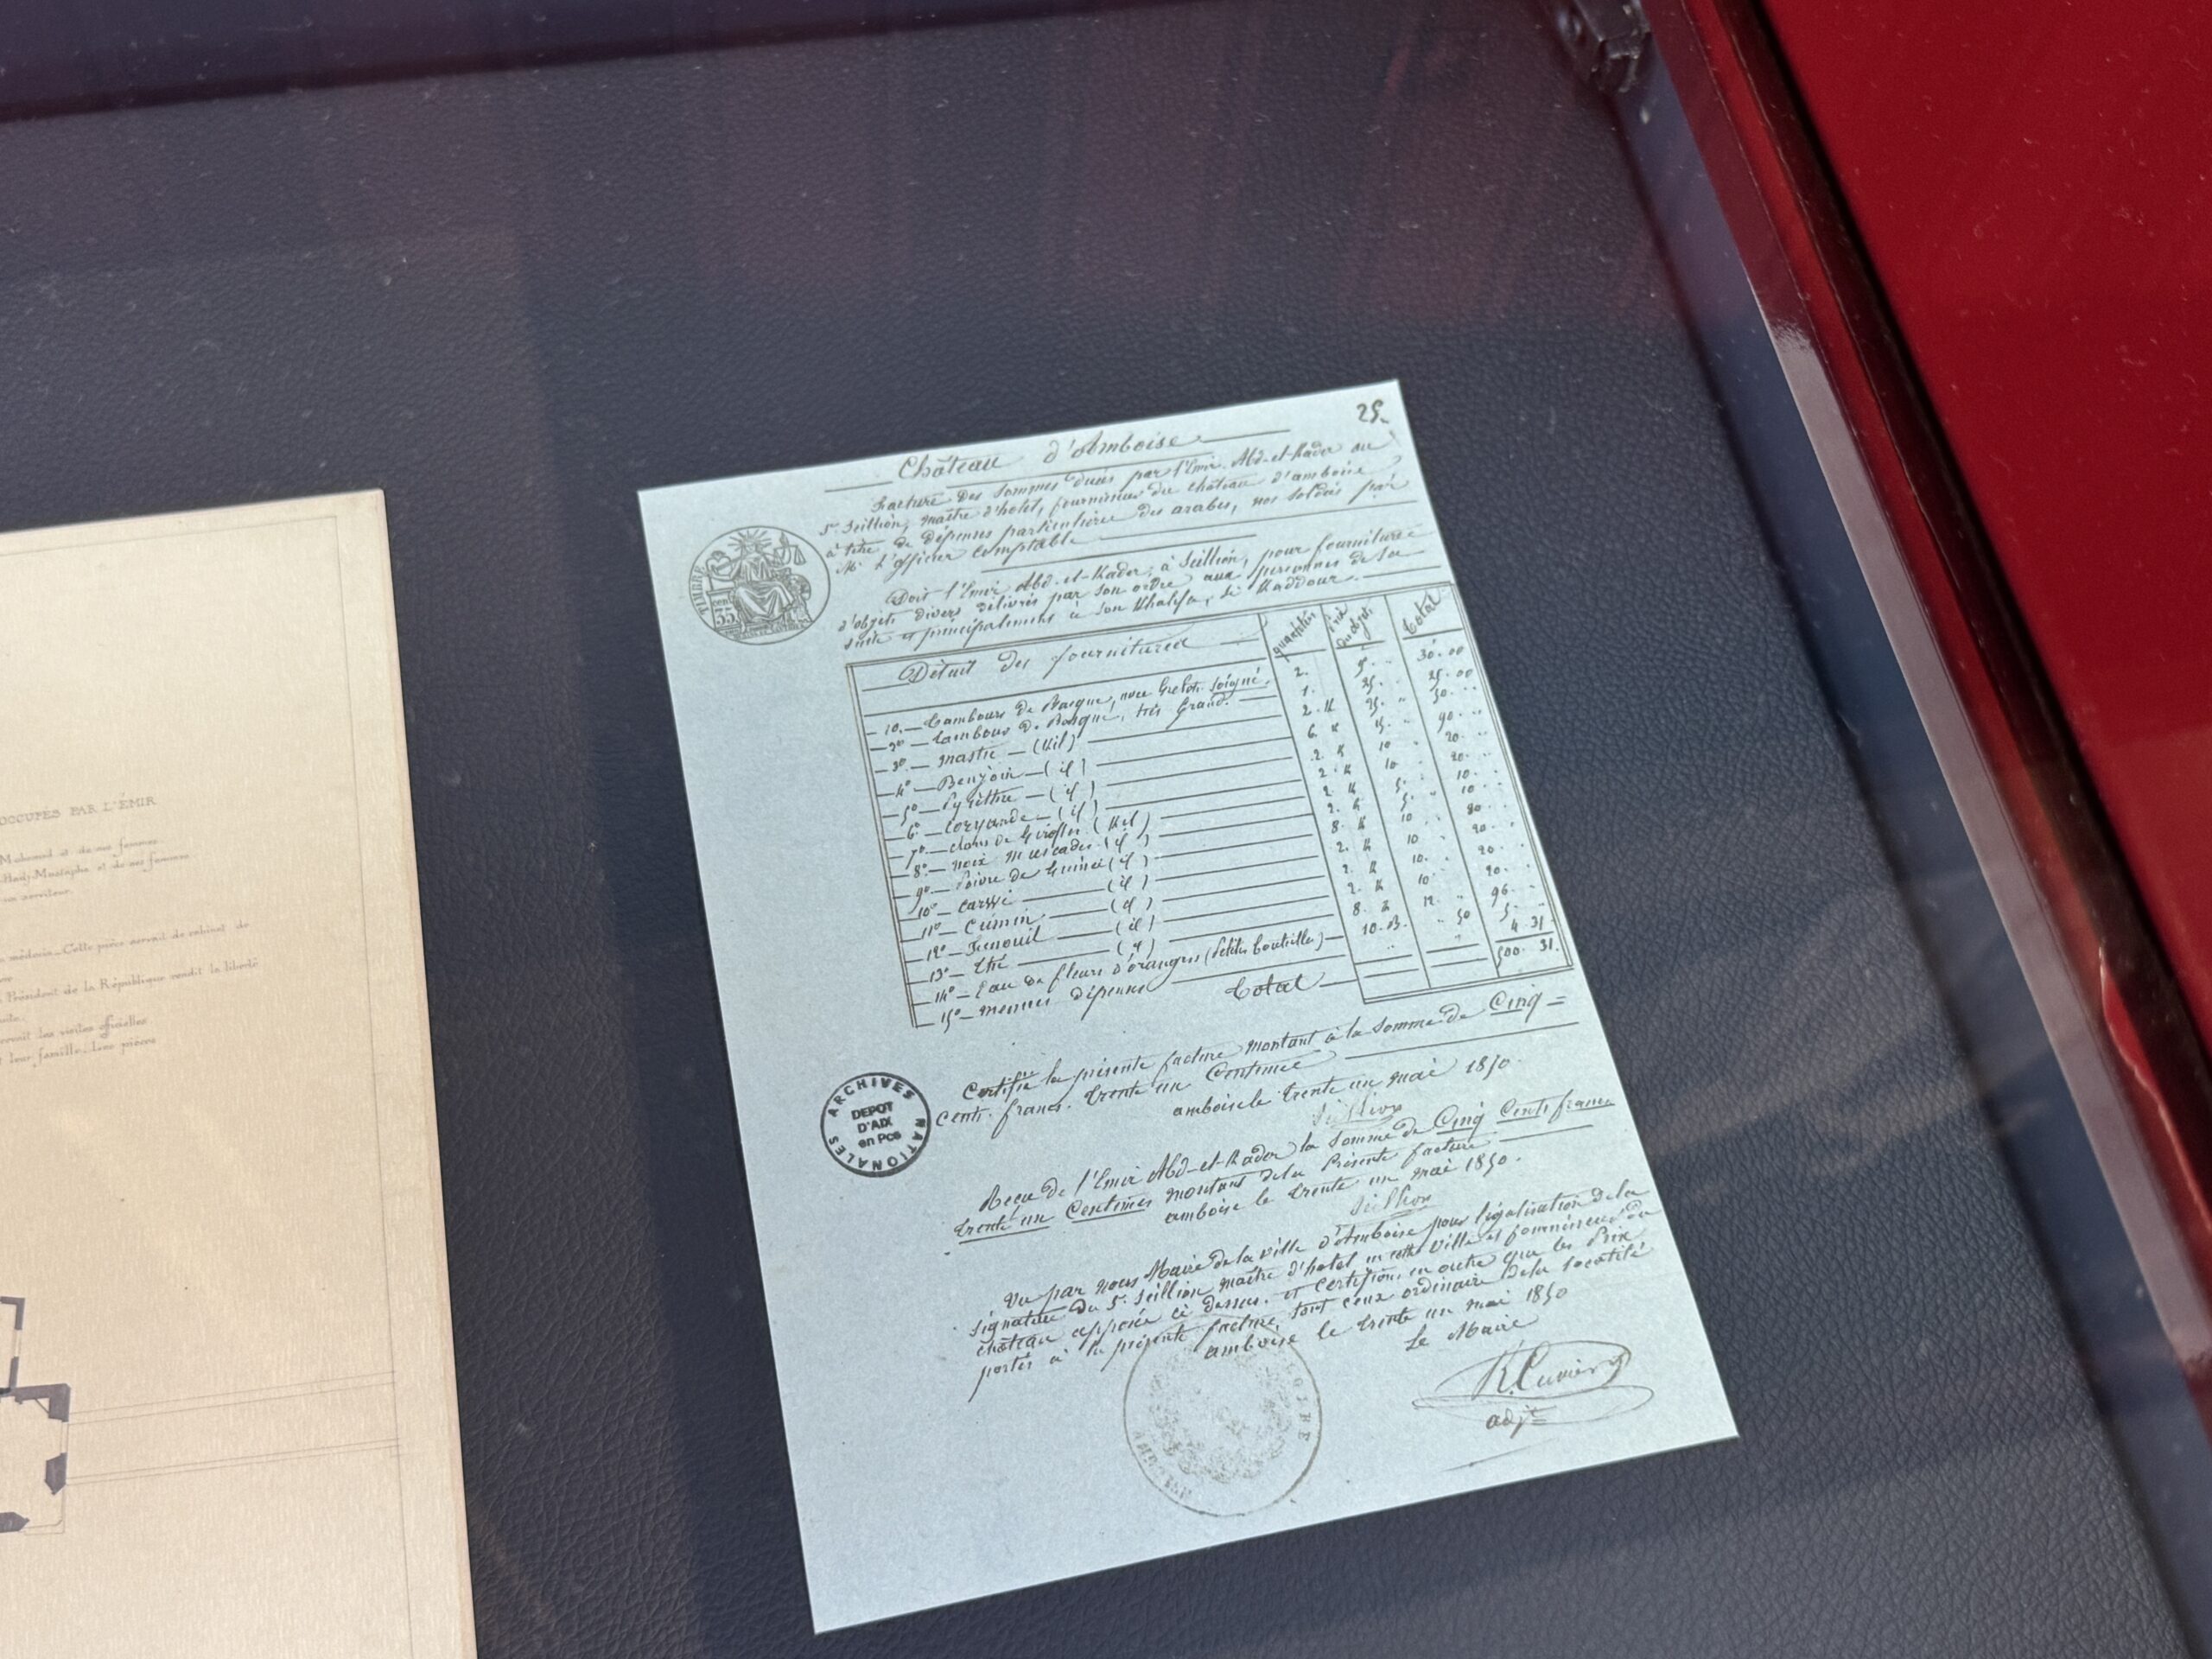 OCCUPÉS PAR L'ÉMIR
Mohamed et de ses femmes
Hadj-Mustapha et de ses femmes
médecin - Cette pièce servait de cabinet de
Président de la République rendit la liberté
les visites officielles
leur famille - Leur
25.
Château d'Amboise
Facture des Sommes dues par l'Emir Abd-et-Kader au
Sr Seillion, maître d'hotel, fournisseur du château d'amboise
à titre de dépenses particulières des arabes, non soldées par
Mr L'officier Comptable
Doit l'Emir Abd-et-Kader, à Seillion, pour fourniture
d'objets divers délivrés par son ordre aux personnes de sa
suite et principalement à son Khalifa, Si Kaddour.
TIMBRE
35 cent
Détail des fournitures quantités Prix du objet Total
1o.— Tambours de Basque, avec Grelots soigné. 2. 30.00
2o— Tambour de Basque, très Grand. 1. 25. 25.00
3o.— Mastic — (Kil) 2. K 25. 50.
4o— Benjoin — (id) 6. K 15. 90.
5o— Pyrèthre — (id) 2. K 10 20.
6o— Coryande — (id) 2. K 10. 20.
7o.— clous de Girofles (Kil) 2. K 5. 10.
8o.— noix Muscades (id) 2. K 5. 10.
9o— Poivre de Guinée (id) 8. K 10 80.
10o— (id) 2. K 10 20.
11o— Cumin. (id) 2. K 10. 20.
12o— Fenouil (id) 2. K 10 20.
13o— Thé (id) 8. K 12. 96.
14o— Eau de fleurs d'oranges (Petites bouteilles) 10. B. 50 5.
15o— Menues dépenses 4 31
Total 500. 31.
Certifié la présente facture montant à la somme de Cinq =
Cents francs trente un Centimes
amboise le trente un mai 1850.
Seillion
ARCHIVES NATIONALES
DEPOT
D'AIX
en Pce
Reçu de l'Emir Abd-et-Kader la somme de Cinq Cents francs
trente un Centimes montant de la Présente facture.
amboise le trente un mai 1850.
Seillion
Vu par nous Maire de la ville d'Amboise pour légalisation de la
signature du Sr Seillion maître d'hotel en cette ville et fournisseur du
château apposée ci dessus. et Certifions en outre que les Prix
portés à la présente facture, sont ceux ordinaire de la localité
amboise le trente un mai 1850
Le Maire
adjt
LOIRE